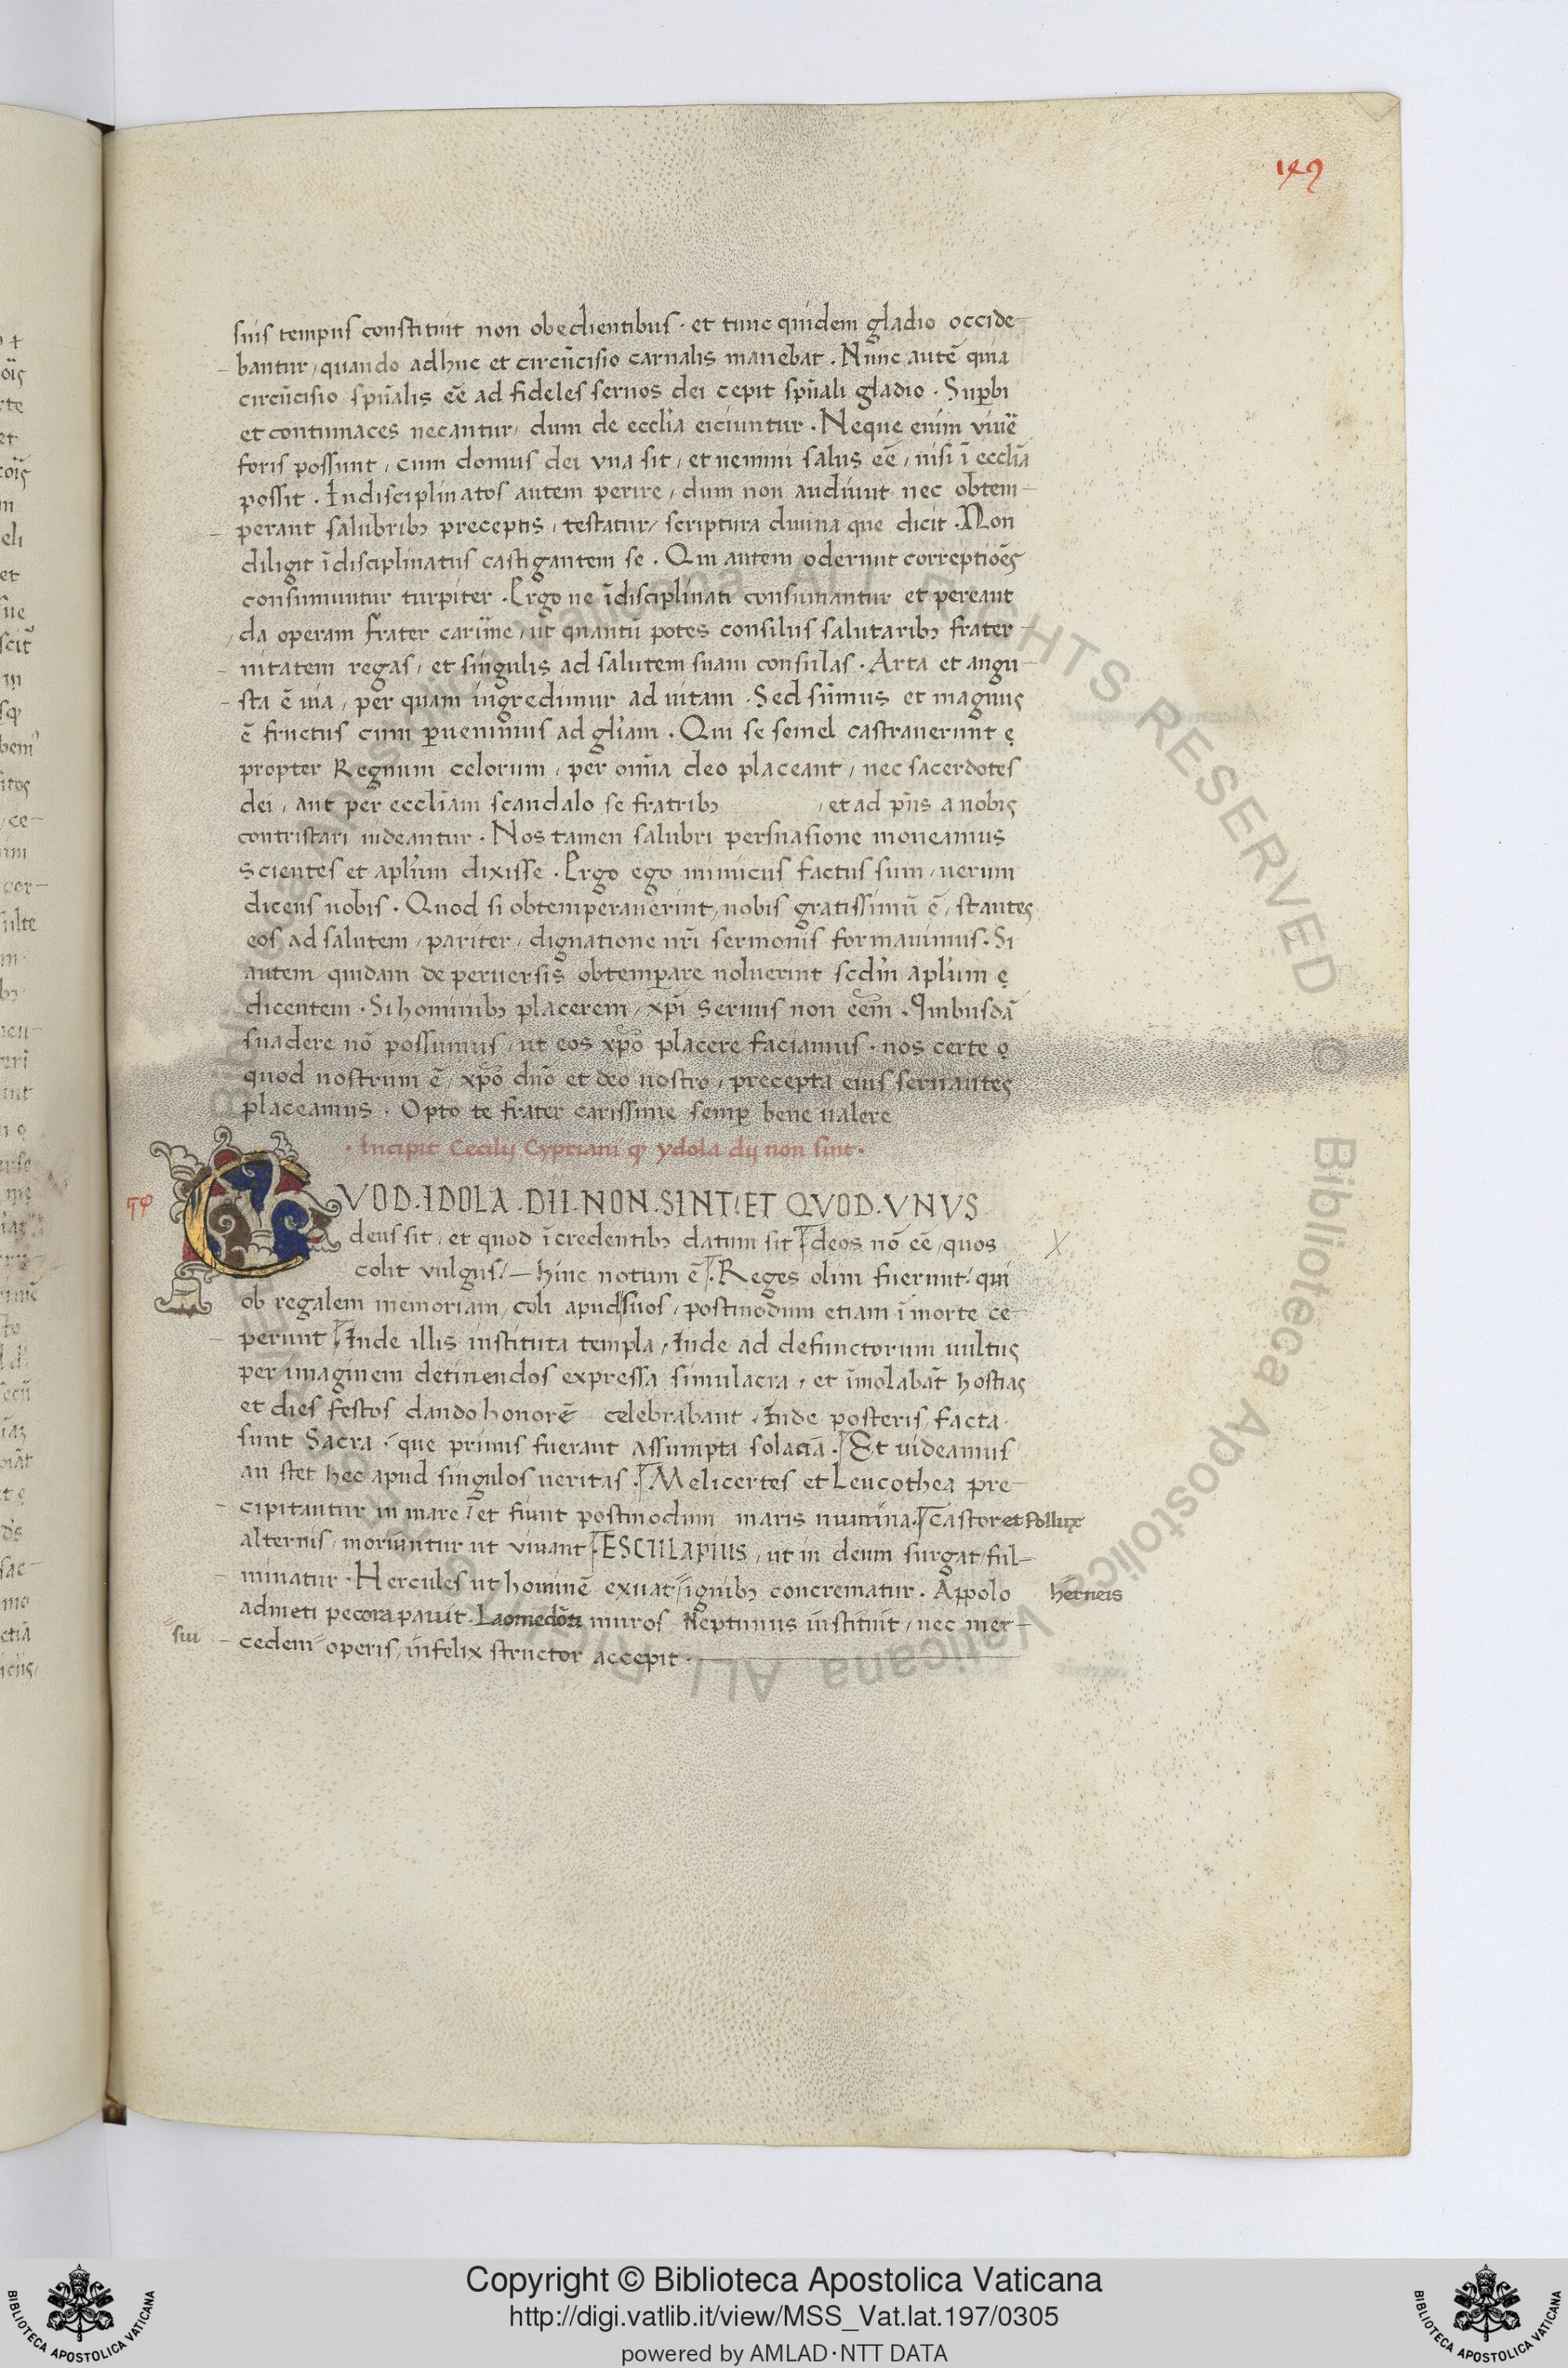 149
suis tempus constituit non obedientibus · et tunc quidem gladio occide-
bantur, quando adhuc et circūcisio carnalis manebat . Nunc autē quia
circūcisio spūalis eē ad fideles seruos dei cepit spūali gladio . Supbi
et contumaces necantur, dum de ecclīa eiciuntur . Neque enim viue
foris possunt, cum domus dei vna sit, et nemini salus eē, nisi ī ecclīa
possit . Indisciplinatos autem perire, dum non audiunt nec obtem-
perant salubribꝫ preceptis, testatur, scriptura diuina que dicit . Non
diligit īdisciplinatus castigantem se . Qui autem oderunt correptiōes
consumuntur turpiter . Ergo ne īdisciplinati consumantur et pereant
, da operam frater carīme, ut quantū potes consiliis salutaribꝫ frater-
nitatem regas, et singulis ad salutem suam consulas . Arta et angu-
sta ē uia, per quam ingredimur ad uitam . Sed sūmus et magnus
ē fructus cum ꝑuenimus ad glīam . Qui se semel castrauerunt ę
propter Regnum celorum, per omīa deo placeant, nec sacerdotes
dei, aut per ecclīam scandalo se fratribꝫ , et ad pn̄s a nobis
contristari uideantur . Nos tamen salubri persuasione moueamus
scientes et aplūm dixisse . Ergo ego inimicus factus sum, uerum
dicens uobis . Quod si obtemperauerint, nobis gratissimū ē, stantes
eos ad salutem, pariter, dignatione nr̄i sermonis formauimus . Si
autem quidam de peruersis obtemꝑare noluerint scdm̄ aplūm ę
dicentem . Si hominibꝫ placerem, xp̄i seruus non eēm . Quibusdā
suadere nō possumus, ut eos xp̄o placere faciamus . nos certe ọ
quod nostrum ē, xp̄o dn̄o et deo nostro, precepta eius seruantes
placeamus . Opto te frater carissime semꝑ bene ualere
· Incipit Cecilij Cypriani ꝙ ydola dij non sint ·
QVOD . IDOLA . DII . NON . SINT ET QVOD . VNVS
deus sit, et quod ī credentibꝫ datum sit deos nō eē, quos
colit vulgus — hinc notum ē . Reges olim fuerunt qui
ob regalem memoriam, coli apud suos, postmodum etiam ī morte ce-
perunt Inde illis instituta templa, Inde ad defunctorum uultus
per imaginem detinendos expressa simulacra, et īmolabāt hostias
et dies festos dando honorē celebrabant . Inde posteris facta
sunt Sacra . que primis fuerant assumpta solacia . Et uideamus
an stet hec apud singulos ueritas . Melicertes et Leucothea pre-
cipitantur in mare et fiunt postmodum maris numina . Castor et Pollux
alternis, moriuntur ut viuant . ESCULAPIUS, ut in deum surgat, ful-
minatur . Hercules ut hominē exuat, ignibꝫ concrematur . Appolo
herneis
admeti pecora pauit . Laomedōti muros Neptunus instituit, nec mer-
sui
cedem operis, infelix structor accepit .
Copyright © Biblioteca Apostolica Vaticana
http://digi.vatlib.it/view/MSS_Vat.lat.197/0305
powered by AMLAD·NTT DATA
BIBLIOTECA APOSTOLICA VATICANA
BIBLIOTECA APOSTOLICA VATICANA